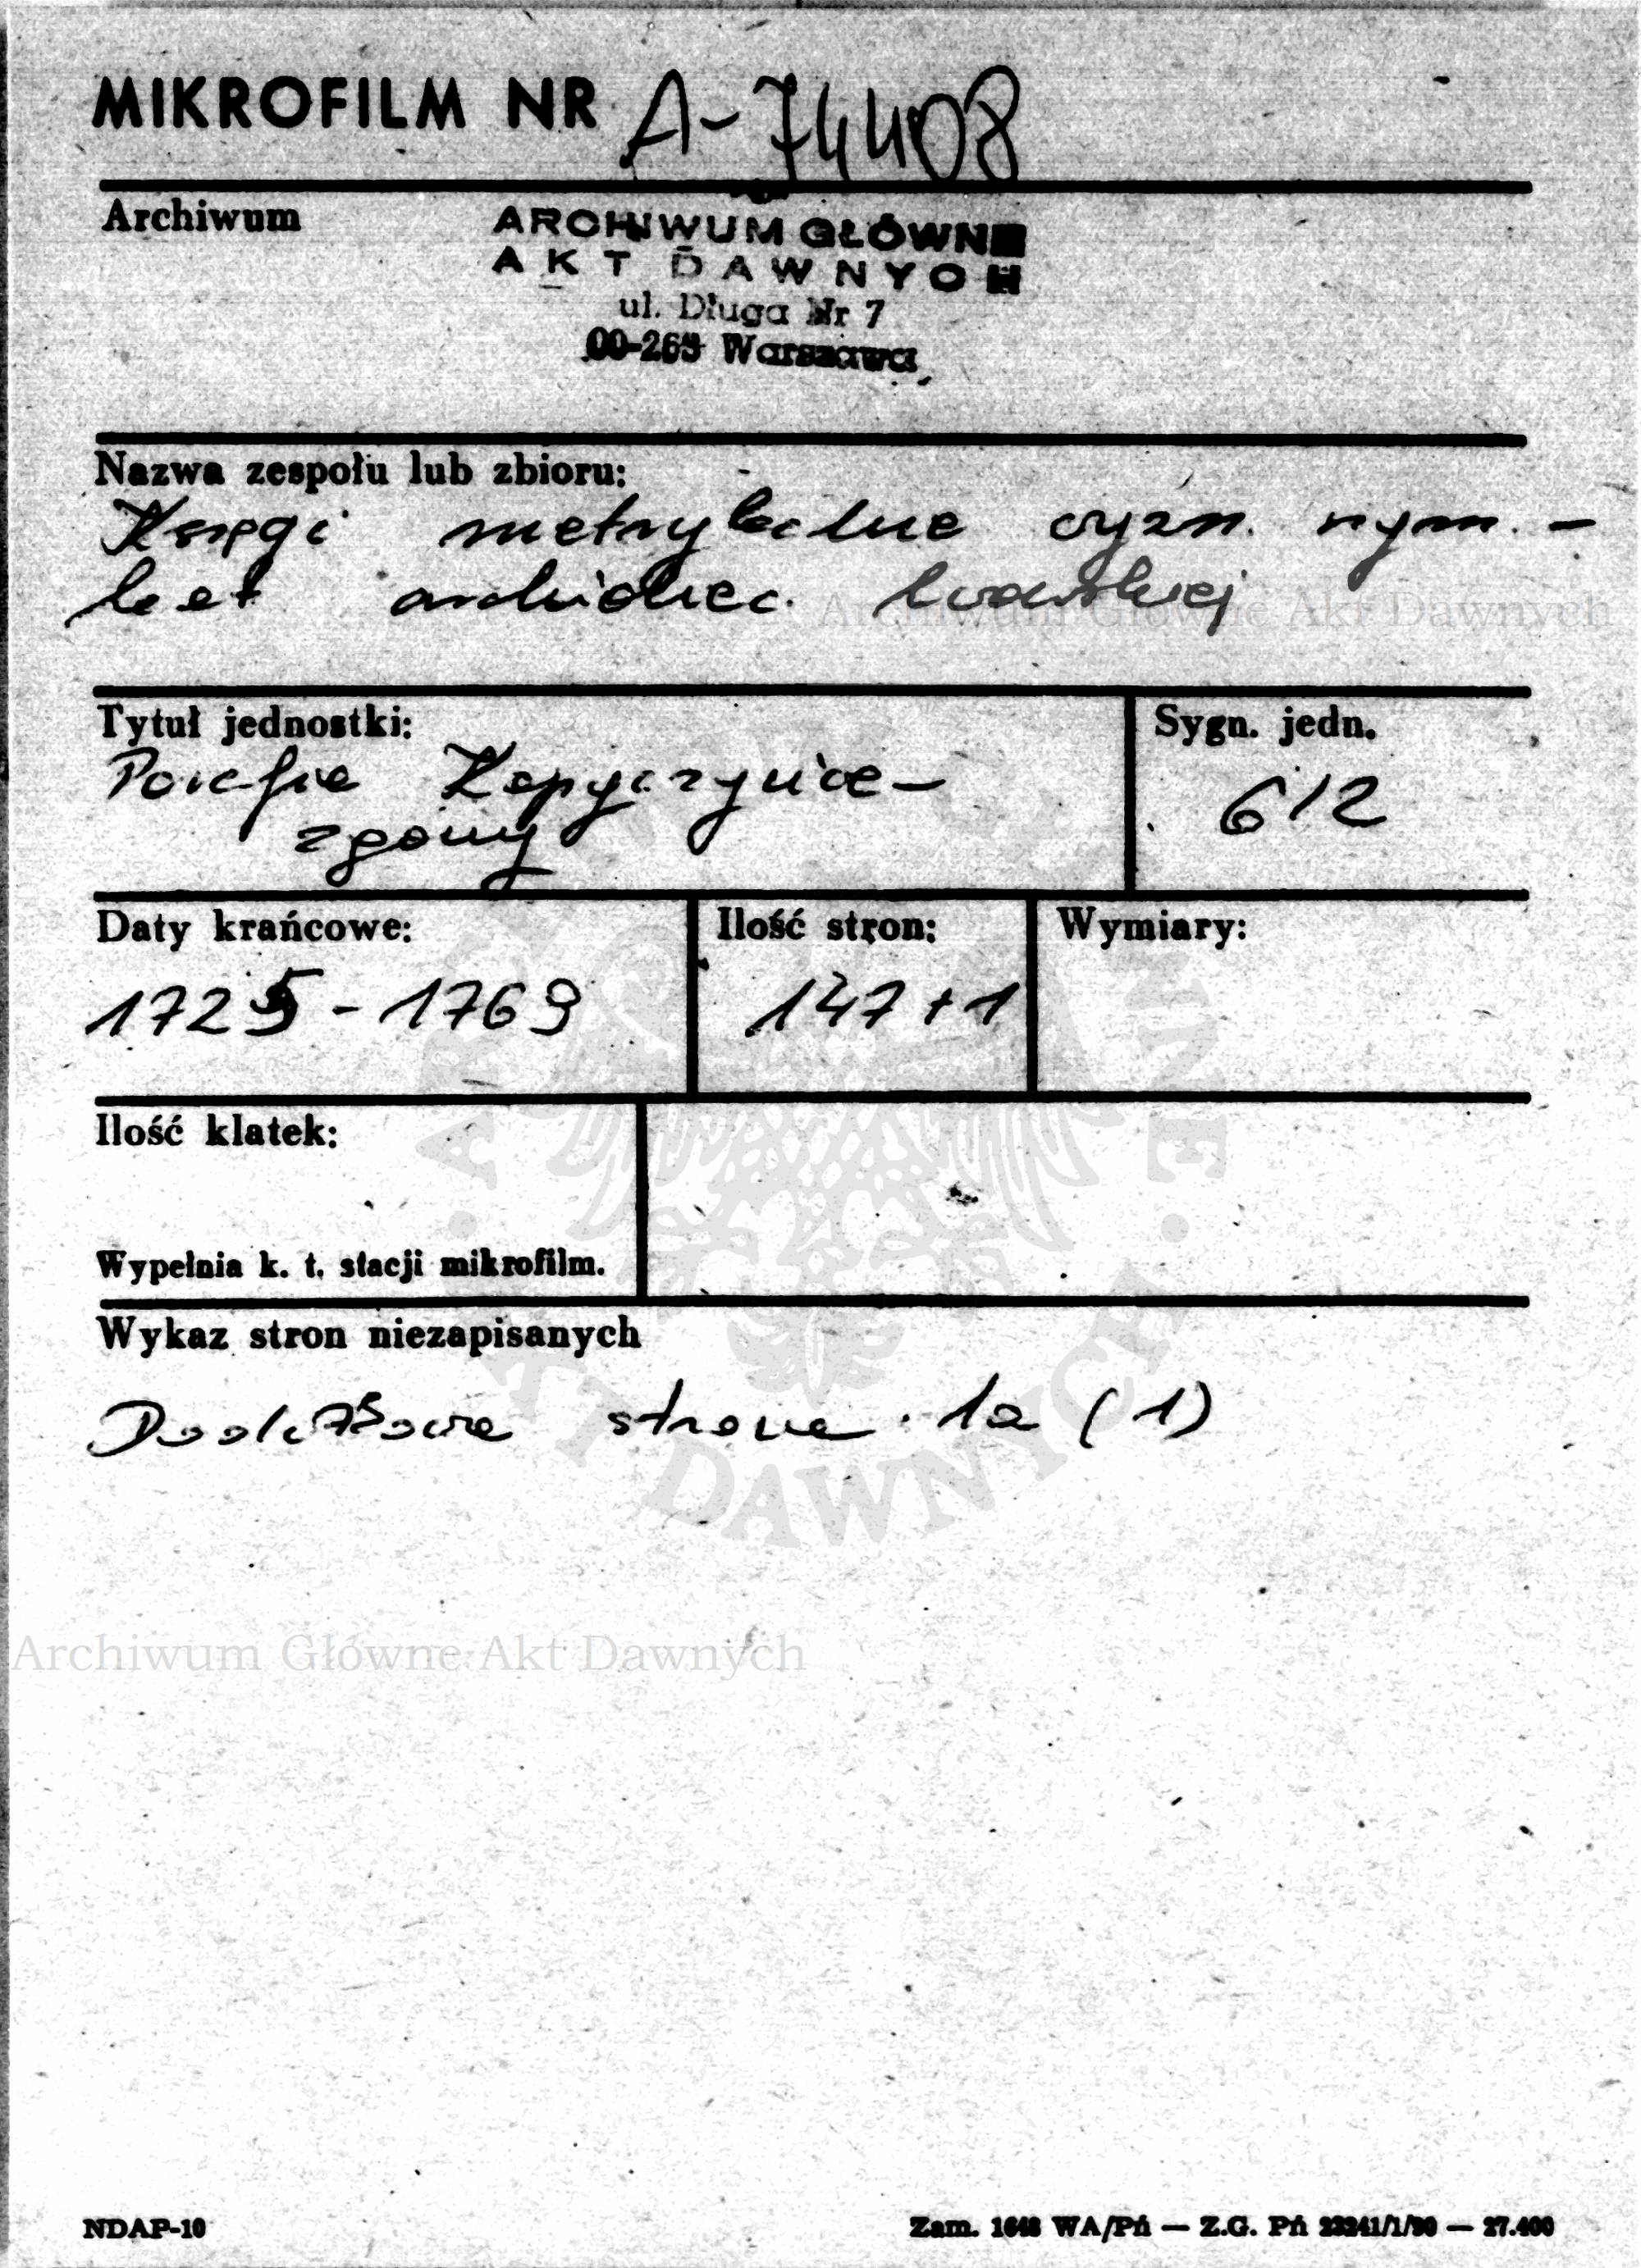 MIKROFILM NR A-74408
Archiwum
ARCHIWUM GŁÓWNE
AKT DAWNYCH
ul. Długa Nr 7
00-263 Warszawa
Nazwa zespołu lub zbioru:
Księgi metrykalne wyzn. rzym. -
kat archidiec. lwowskiej
Archiwum Główne Akt Dawnych
Tytuł jednostki:
Sygn. jedn.
Parafia Kopyczyńce -
zgony
612
Daty krańcowe:
Ilość stron:
Wymiary:
1725 - 1769
147 + 1
Ilość klatek:
Wypełnia k. t. stacji mikrofilm.
Wykaz stron niezapisanych
Dodatkowa strona 1a (1)
AKT DAWNYCH
Archiwum Główne Akt Dawnych
NDAP-10
Zam. 1648 WA/Pń — Z.G. Pń — 27.400